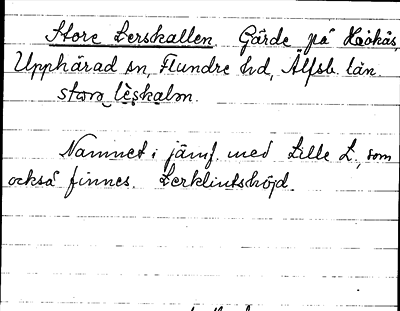 Store Lerskallen. Gärde på Höökås,
Upphärad sn, Flundre hd, Älfsb. län.
storə lèskalən.
Namnet i jämf. med Lille L., som
också finnes. Lerklintshöjd.